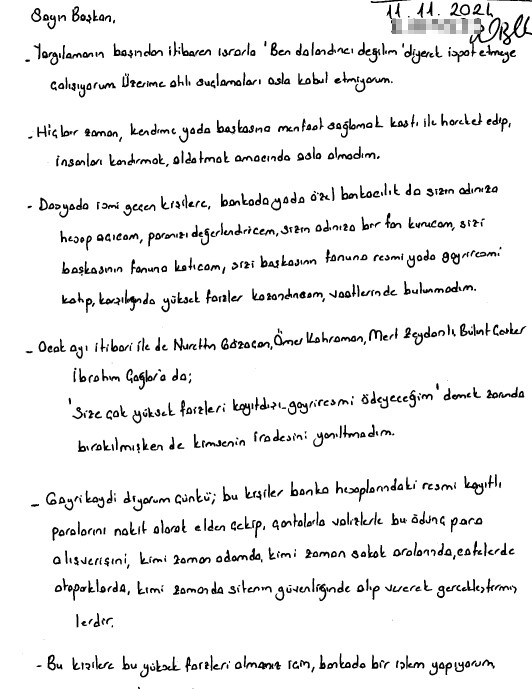 11.11.2024
Sayın Başkan,
- Yargılamanın başından itibaren ısrarla 'Ben dolandırıcı değilim' diyerek ispat etmeye
çalışıyorum Üzerime atılı suçlamaları asla kabul etmiyorum.
- Hiçbir zaman, kendime yada başkasına menfaat sağlamak kastı ile hareket edip,
insanları kandırmak, aldatmak amacında asla olmadım.
- Dosyada ismi geçen kişilere, bankada yada özel bankacılık da sizin adınıza
hesap açıcam, paranızı değerlendiricem, sizin adınıza bir fon kurucam, sizi
başkasının fonuna katıcam, sizi başkasının fonuna resmi yada gayriresmi
katıp, karşılığında yüksek faizler kazandırıcam, vaatlerinde bulunmadım.
- Ocak ayı itibari ile de Nurettin Bozacan, Ömer Kahraman, Mert Zeydanlı, Bülent
İbrahim Çağlar'a da;
'Size çok yüksek faizleri kayıtdışı-gayriresmi ödeyeceğim' demek zorunda
bırakılmışken de kimsenin iradesini yanıltmadım.
- Gayrikaydi diyorum çünkü; bu kişiler banka hesaplarındaki resmi kayıtlı
paralarını nakit olarak elden çekip, çantalarla valizlerle bu ödünç para
alışverişini, kimi zaman odamda, kimi zaman sokak aralarında, cafelerde
otoparklarda, kimi zamanda sitenin güvenliğinde alıp vererek gerçekleştirmiş
lerdir.
- Bu kişilere bu yüksek faizleri almanız için, bankada bir işlem yapıyorum